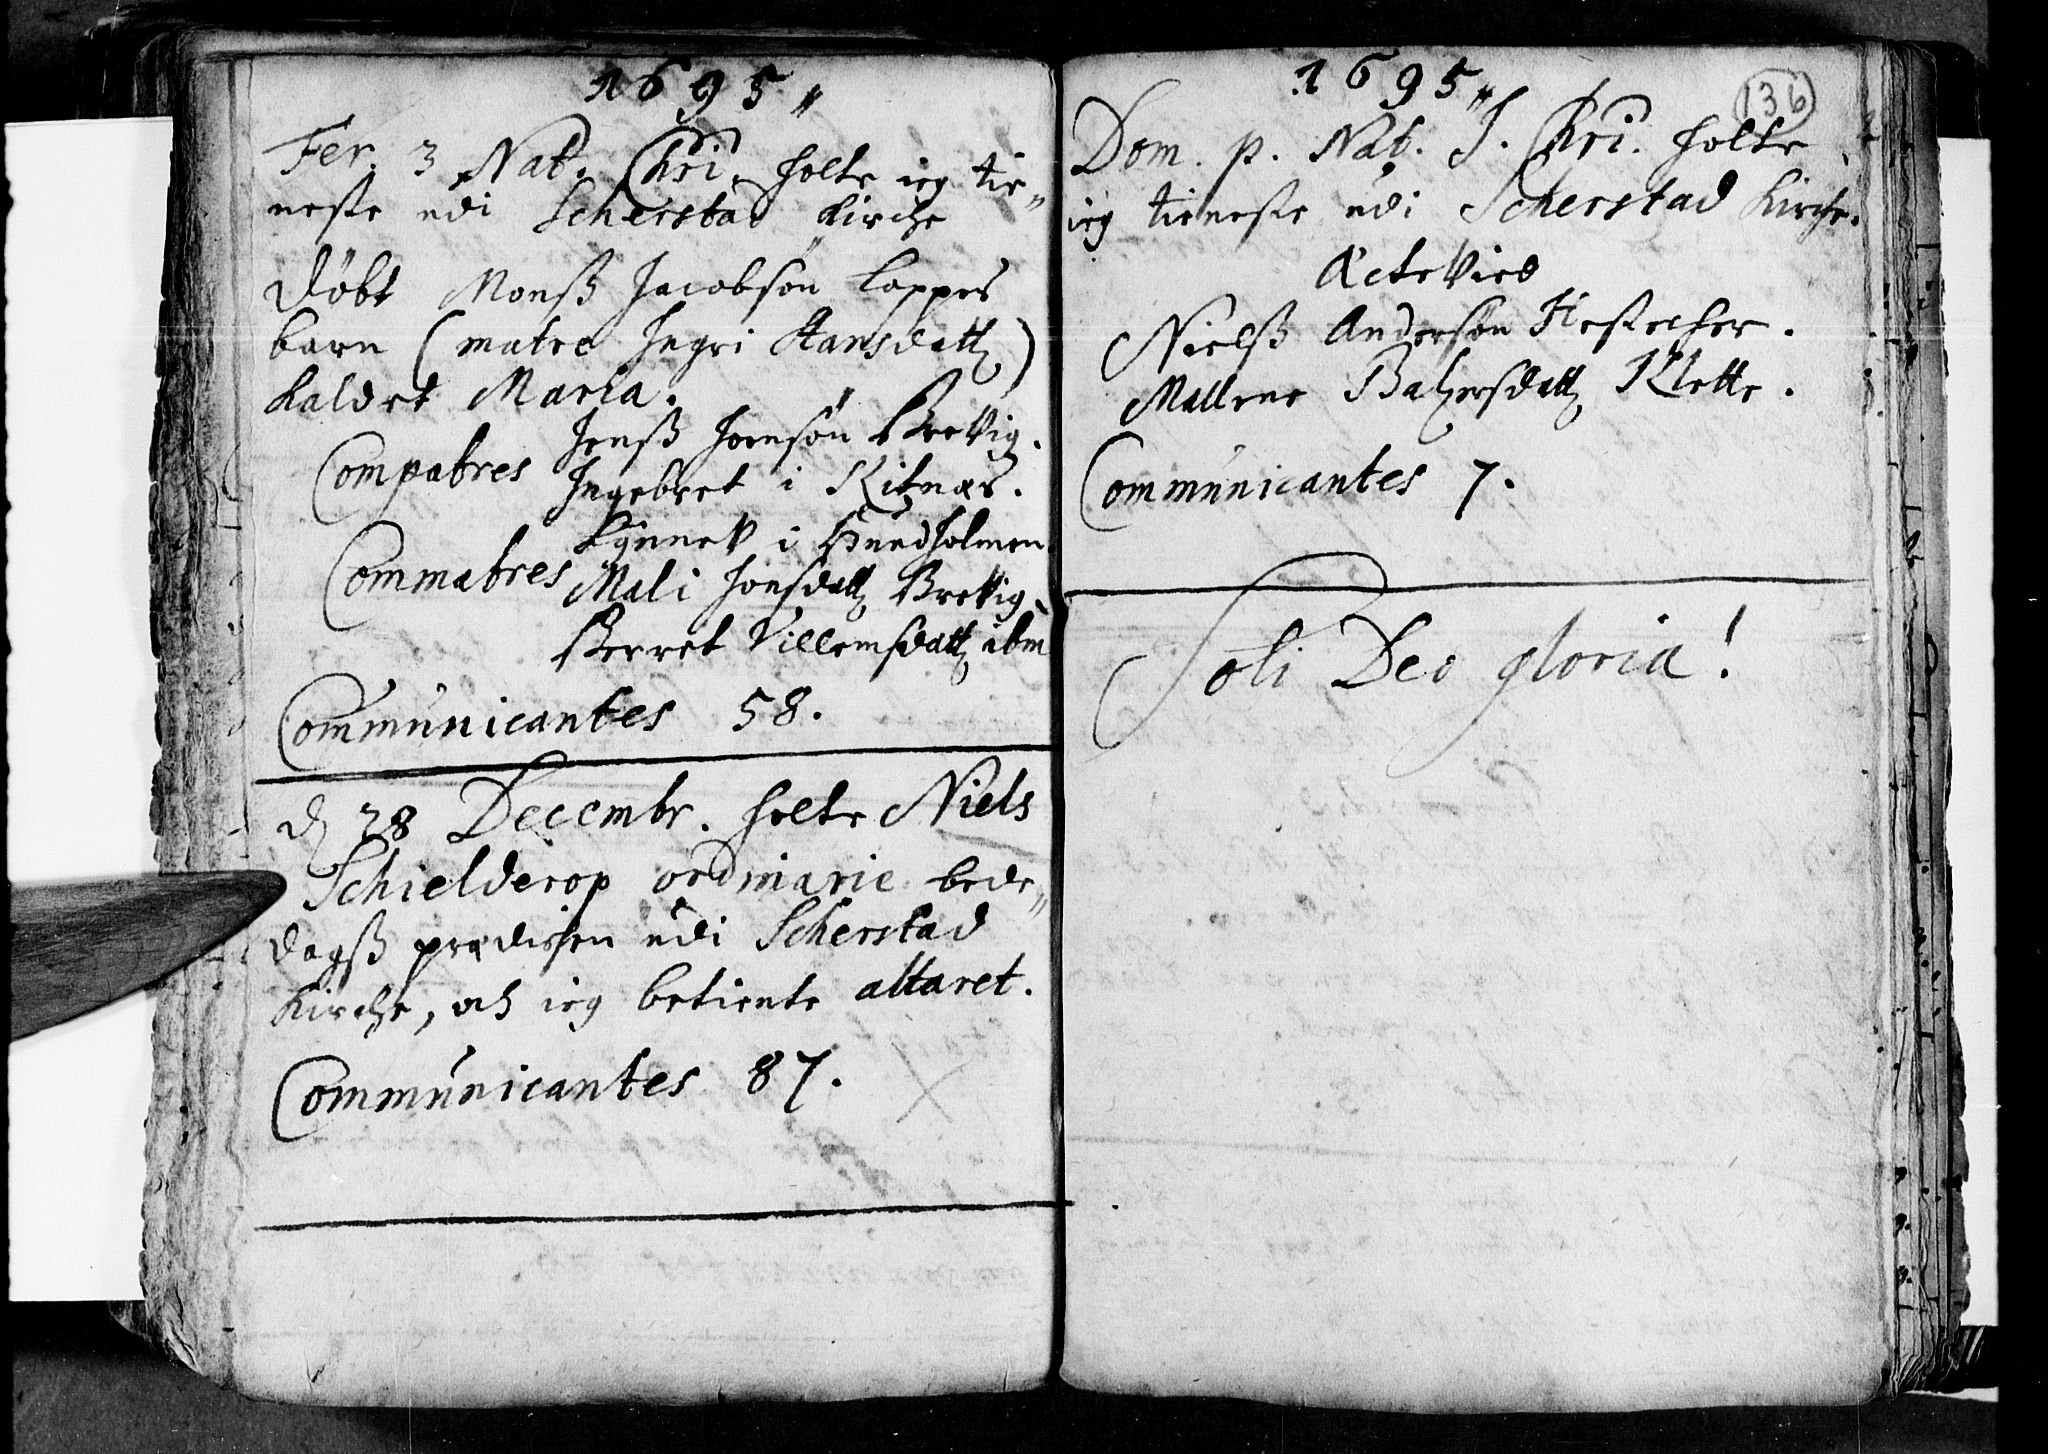 1695"
Fer. 3 Nat. Chri. holte ieg tie-
neste udi Scherstad Kirche
Døbt Monß Jacobsøn Lappes
barn (matre Ingri Hansdatt)
Kaldet Maria.
Jenß Joensøn Brevig.
Compatres Ingebret i Kitnæs.
Rynnev i Hundholmen.
Commatres Mali Jonsdatt Brevig
Berret Villemsdatt ibm
Communicantes 58.
d 28 Decembr. holte Niels
Schielderop ordinarie bede-
dagß prædichen udi Scherstad
Kirche, och ieg betiente altaret.
Communicantes 87.
1695"
136
Dom. p. Nat. J. Chri. holte
ieg tieneste udi Scherstad Kirche.
Ectevied
Nielß Andersøn
Mallene Balzersdatt Klette.
Communicantes 7.
Soli Deo gloria!